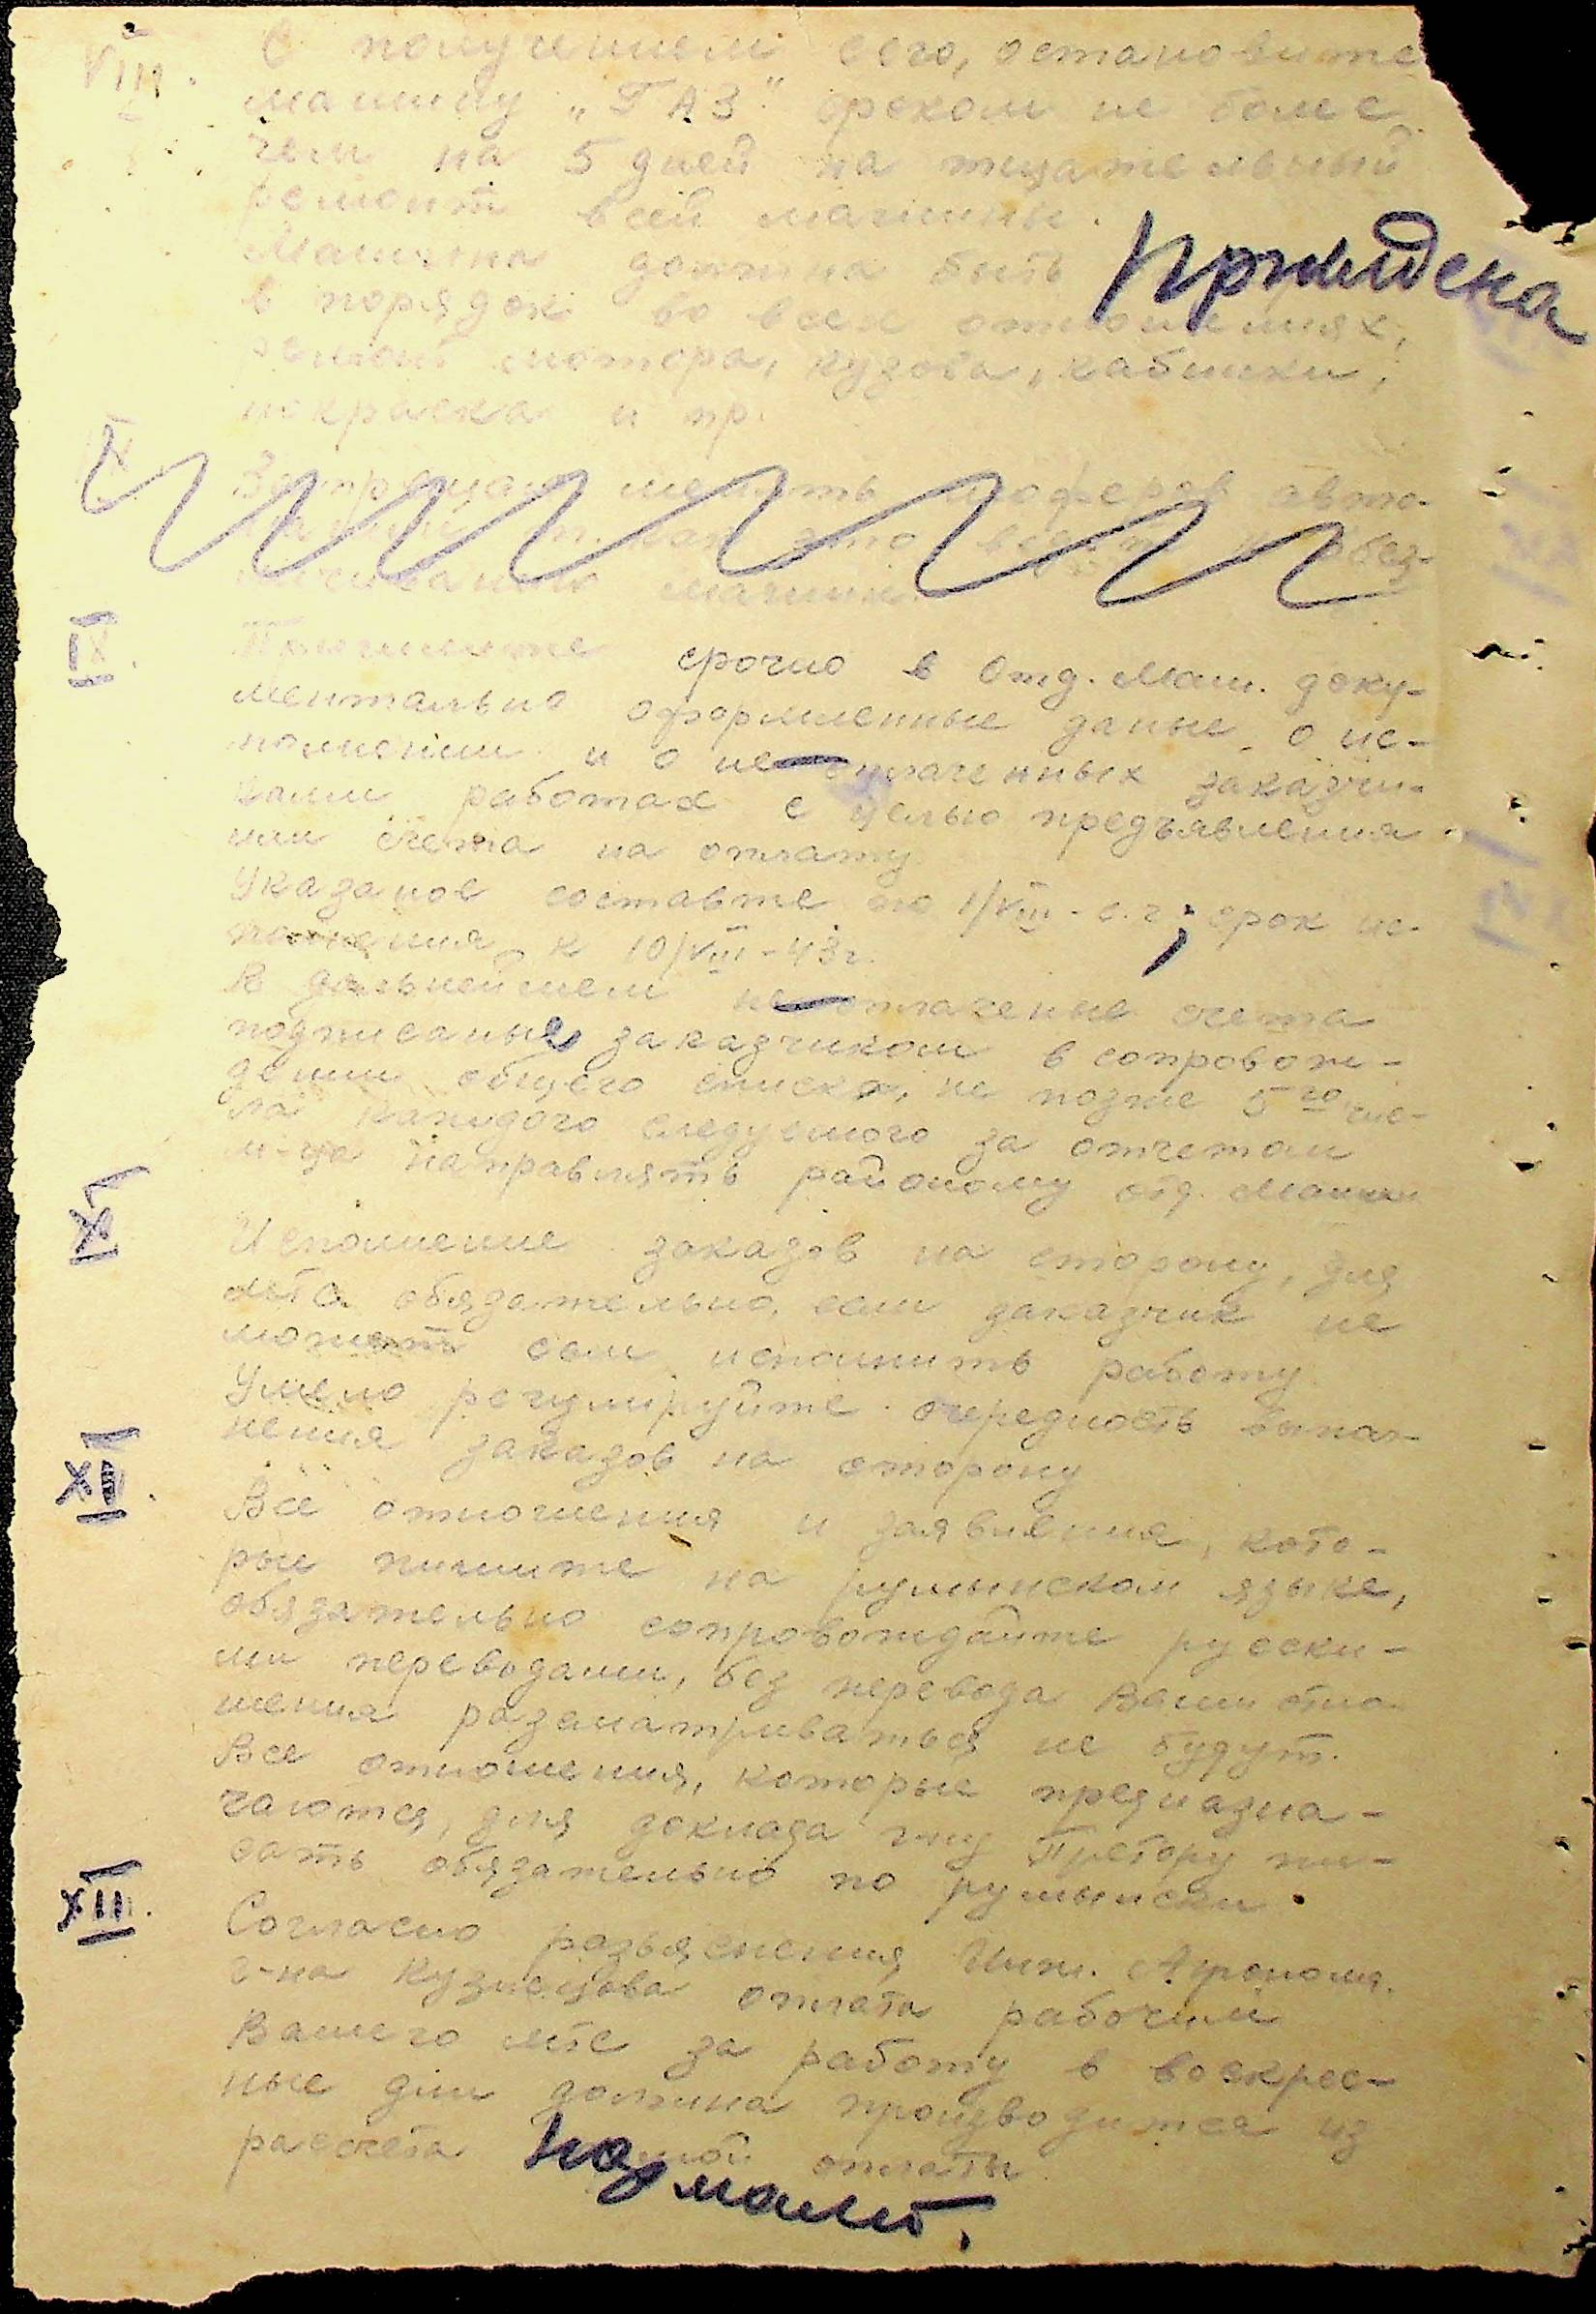 VIII. С получением сего, остановите
машину „ГАЗ" сроком не более
чем на 5 дней на тщательный
ремонт всей машины.
Машина должна быть приведена
в порядок во всех отношениях,
ремонт мотора, кузова, кабинки,
покраска и пр.
Запрещаю менять шоферов авто-
это
машин.
IX. срочно в Отд. Маш. доку-
ментально оформленные даные о ис-
полнении и о не оплаченных заказчи-
ками работах с целью предъявления
им счета на оплату
Указаное составте по 1/VIII - с.г, срок ис-
полнения к 10/VIII - 43г.
В дальнейшем не оплаченые счета
подписаные заказчиком в сопровож-
дении общего списка, не позже 5го чис-
ла каждого следующего за отчетом
м-ца направлять районому отд. Машин
XI Исполнение заказов на сторону, для
МТС обязательно, если заказчик не
может сам исполнить работу
Умело регулируйте очередность выпол-
нения заказов на сторону
XII. Все отношения и заявления, кото-
рые пишите на румынском языке,
обязательно сопровождайте русски-
ми переводами, без перевода Ваши отно-
шения разсматриваться не будут.
Все отношения, которые предназна-
чаются, для доклада г-ну Претору пи-
сать обязательно по румынски.
XIII. Согласно разъяснения Инж. Агронома.
г-на Кузнецова оплата рабочим
Вашего МТС за работу в воскрес-
ные дни должна производится из
расчета оплаты